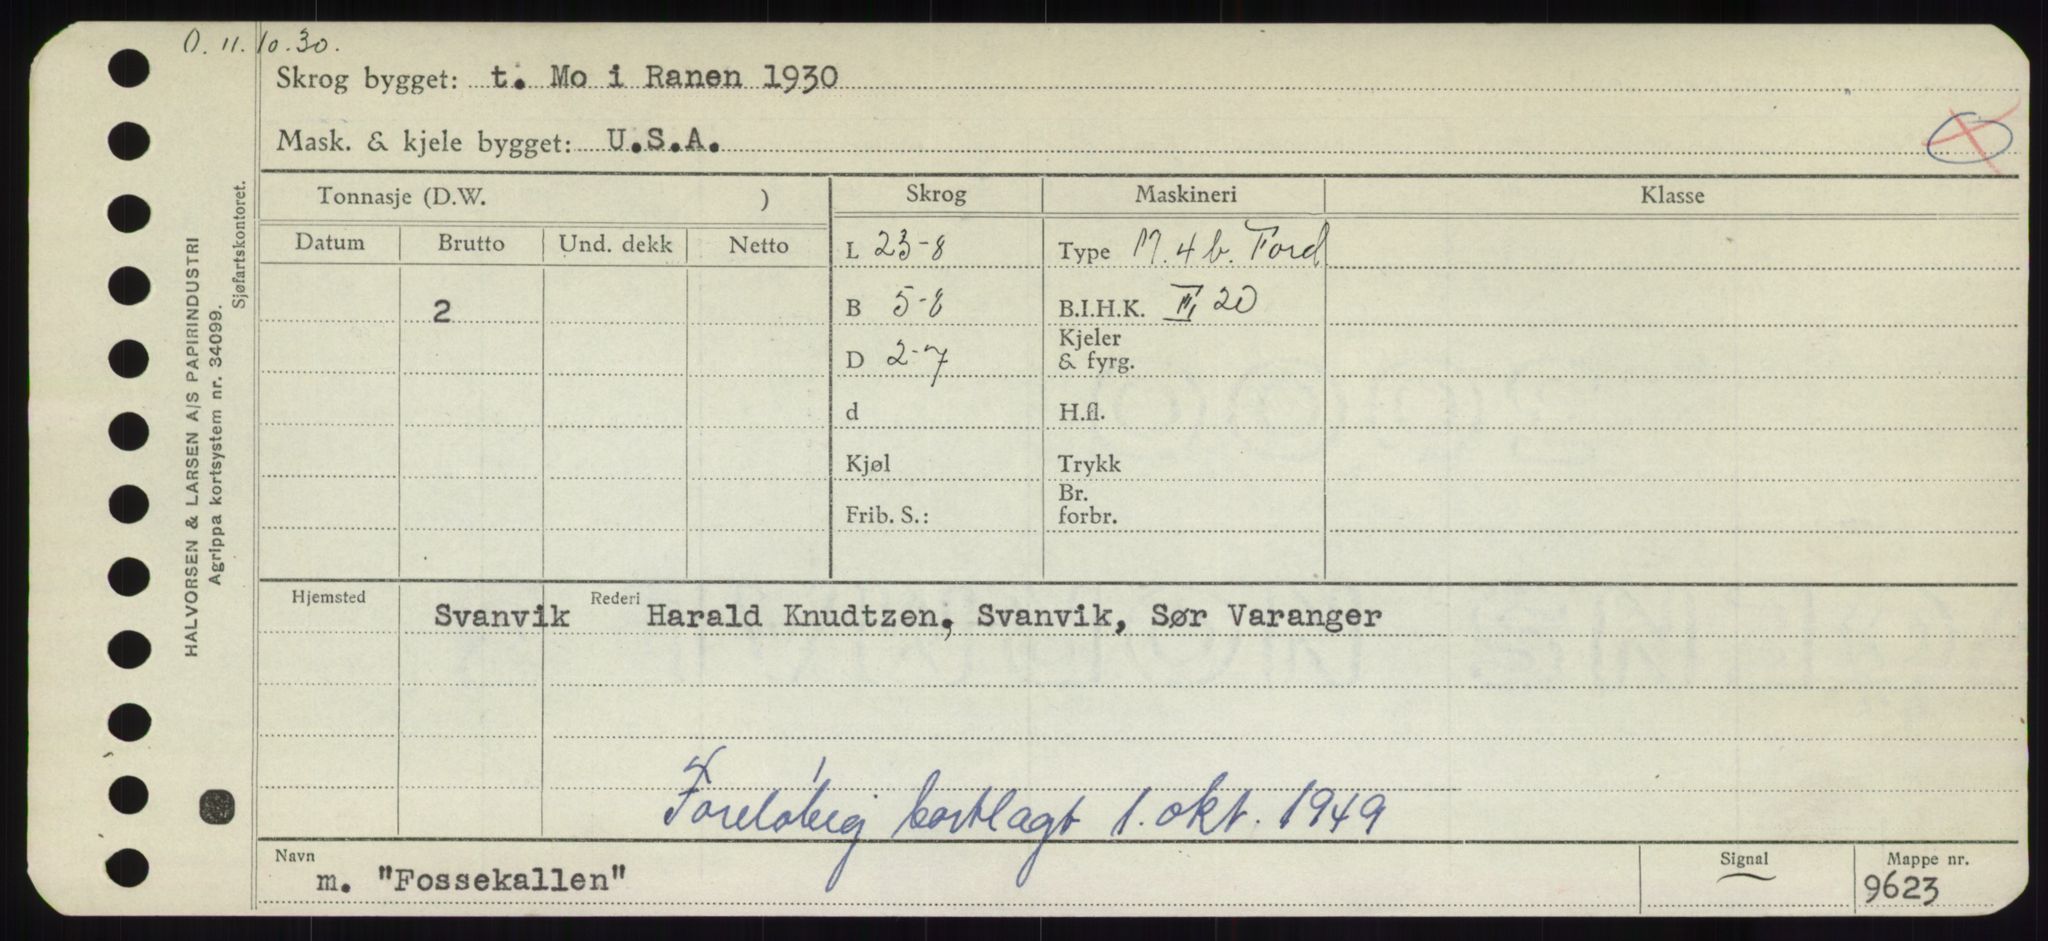 O. 11.10.30.
Skrog bygget: t. Mo i Ranen 1930
Mask. & kjele bygget: U.S.A.
Tonnasje (D.W. )
Skrog Maskineri Klasse
Datum Brutto Und. dekk Netto
L 23-8 Type M. 4 b. Ford
2 B 5-8 B.I.H.K. 20
D 2-7 Kjeler & fyrg.
d H.fl.
Kjøl Trykk
Frib. S.: Br. forbr.
Hjemsted Svanvik Rederi Harald Knudtzen, Svanvik, Sør Varanger
Foreløbig bortlagt 1. okt. 1949
Navn Signal Mappe nr.
m. "Fossekallen" 9623
HALVORSEN & LARSEN A/S PAPIRINDUSTRI
Agrippa kortsystem nr. 34099.
Sjøfartskontoret.